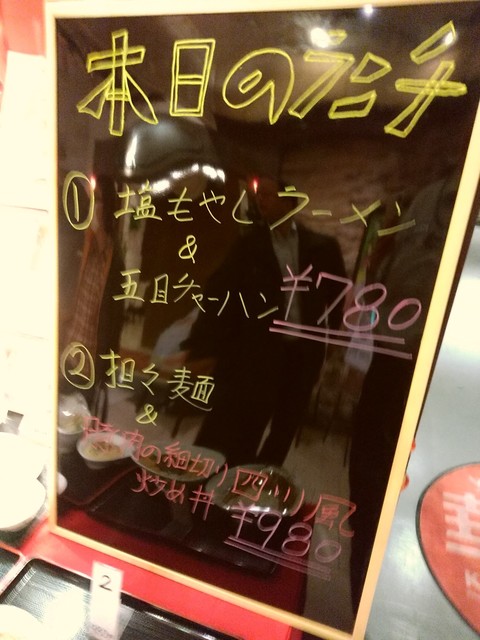 本日のランチ
① 塩もやしラーメン
&
五目チャーハン ¥780
② 担々麺
&
豚肉の細切り四川風
炒め丼 ¥980
2